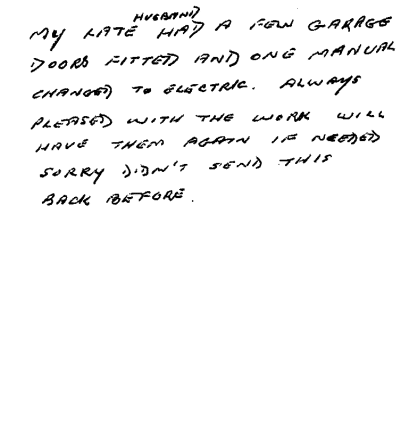 MY LATE HUSBAND HAD A FEW GARAGE
DOORS FITTED AND ONE MANUAL
CHANGED TO ELECTRIC. ALWAYS
PLEASED WITH THE WORK WILL
HAVE THEM AGAIN IF NEEDED
SORRY DIDN'T SEND THIS
BACK BEFORE.